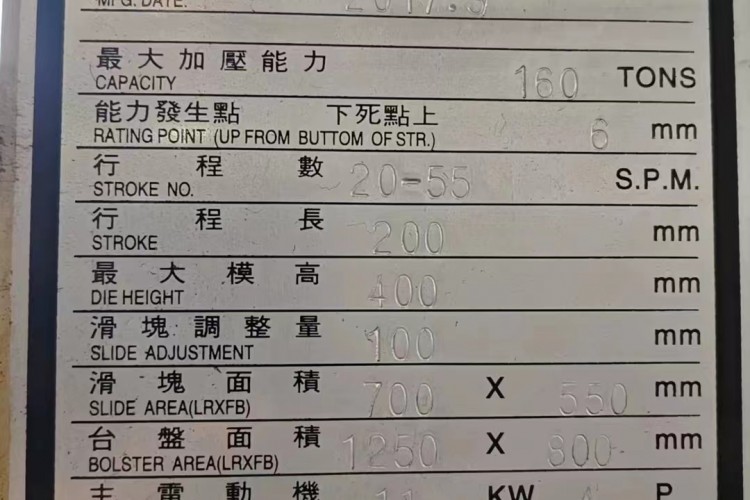 MFG. DATE. 2017.5
最大加壓能力
CAPACITY 160 TONS
能力發生點 下死點上
RATING POINT (UP FROM BUTTOM OF STR.) 6 mm
行程數
STROKE NO. 20-55 S.P.M.
行程長
STROKE 200 mm
最大模高
DIE HEIGHT 400 mm
滑塊調整量
SLIDE ADJUSTMENT 100 mm
滑塊面積
SLIDE AREA(LRXFB) 700 X 550 mm
台盤面積
BOLSTER AREA(LRXFB) 1250 X 800 mm
主電動機 11 KW 4 P